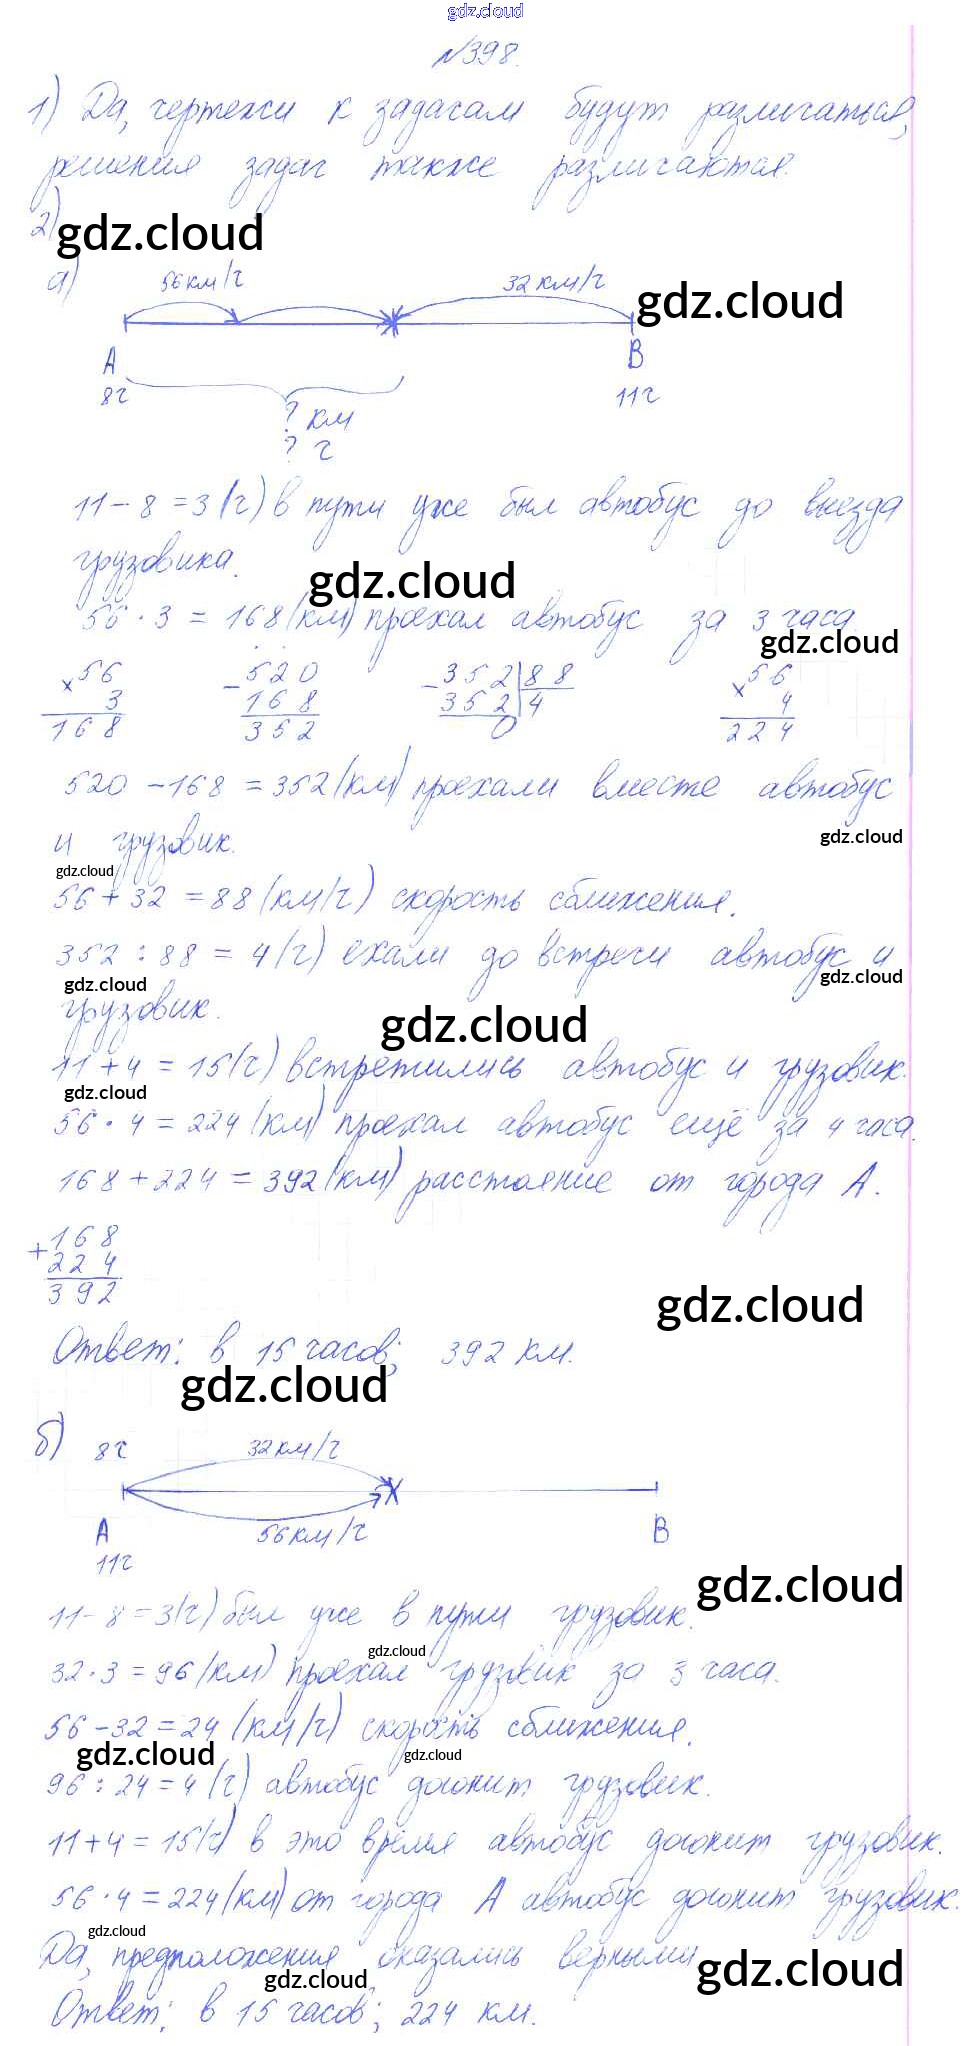 gdz.cloud
№398.
1) Да, чертежи к задачам будут различаться,
решения задач также различаются.
2)
gdz.cloud
а) 56 км/ч 32 км/ч
gdz.cloud
А В
8ч 11ч
? км
? ч
11 - 8 = 3 (ч) в пути уже был автобус до выезда
грузовика.
gdz.cloud
56 · 3 = 168 (км) проехал автобус за 3 часа.
gdz.cloud
× 56 - 520 - 352 | 88 × 56
3 168 352 | 4 4
168 352 0 224
520 - 168 = 352 (км) проехали вместе автобус
и грузовик.
gdz.cloud
gdz.cloud
56 + 32 = 88 (км/ч) скорость сближения.
352 : 88 = 4 (ч) ехали до встречи автобус и
gdz.cloud gdz.cloud
грузовик.
gdz.cloud
11 + 4 = 15 (ч) встретились автобус и грузовик.
gdz.cloud
56 · 4 = 224 (км) проехал автобус ещё за 4 часа.
168 + 224 = 392 (км) расстояние от города А.
+ 168
224
392
gdz.cloud
Ответ: в 15 часов; 392 км.
gdz.cloud
б) 8ч 32 км/ч
А 56 км/ч В
11ч
gdz.cloud
11 - 8 = 3 (ч) был уже в пути грузовик.
gdz.cloud
32 · 3 = 96 (км) проехал грузовик за 3 часа.
56 - 32 = 24 (км/ч) скорость сближения.
gdz.cloud gdz.cloud
96 : 24 = 4 (ч) автобус догонит грузовик.
11 + 4 = 15 (ч) в это время автобус догонит грузовик.
56 · 4 = 224 (км) от города А автобус догонит грузовик.
gdz.cloud
Да, предположения оказались верными
gdz.cloud
gdz.cloud
Ответ: в 15 часов; 224 км.